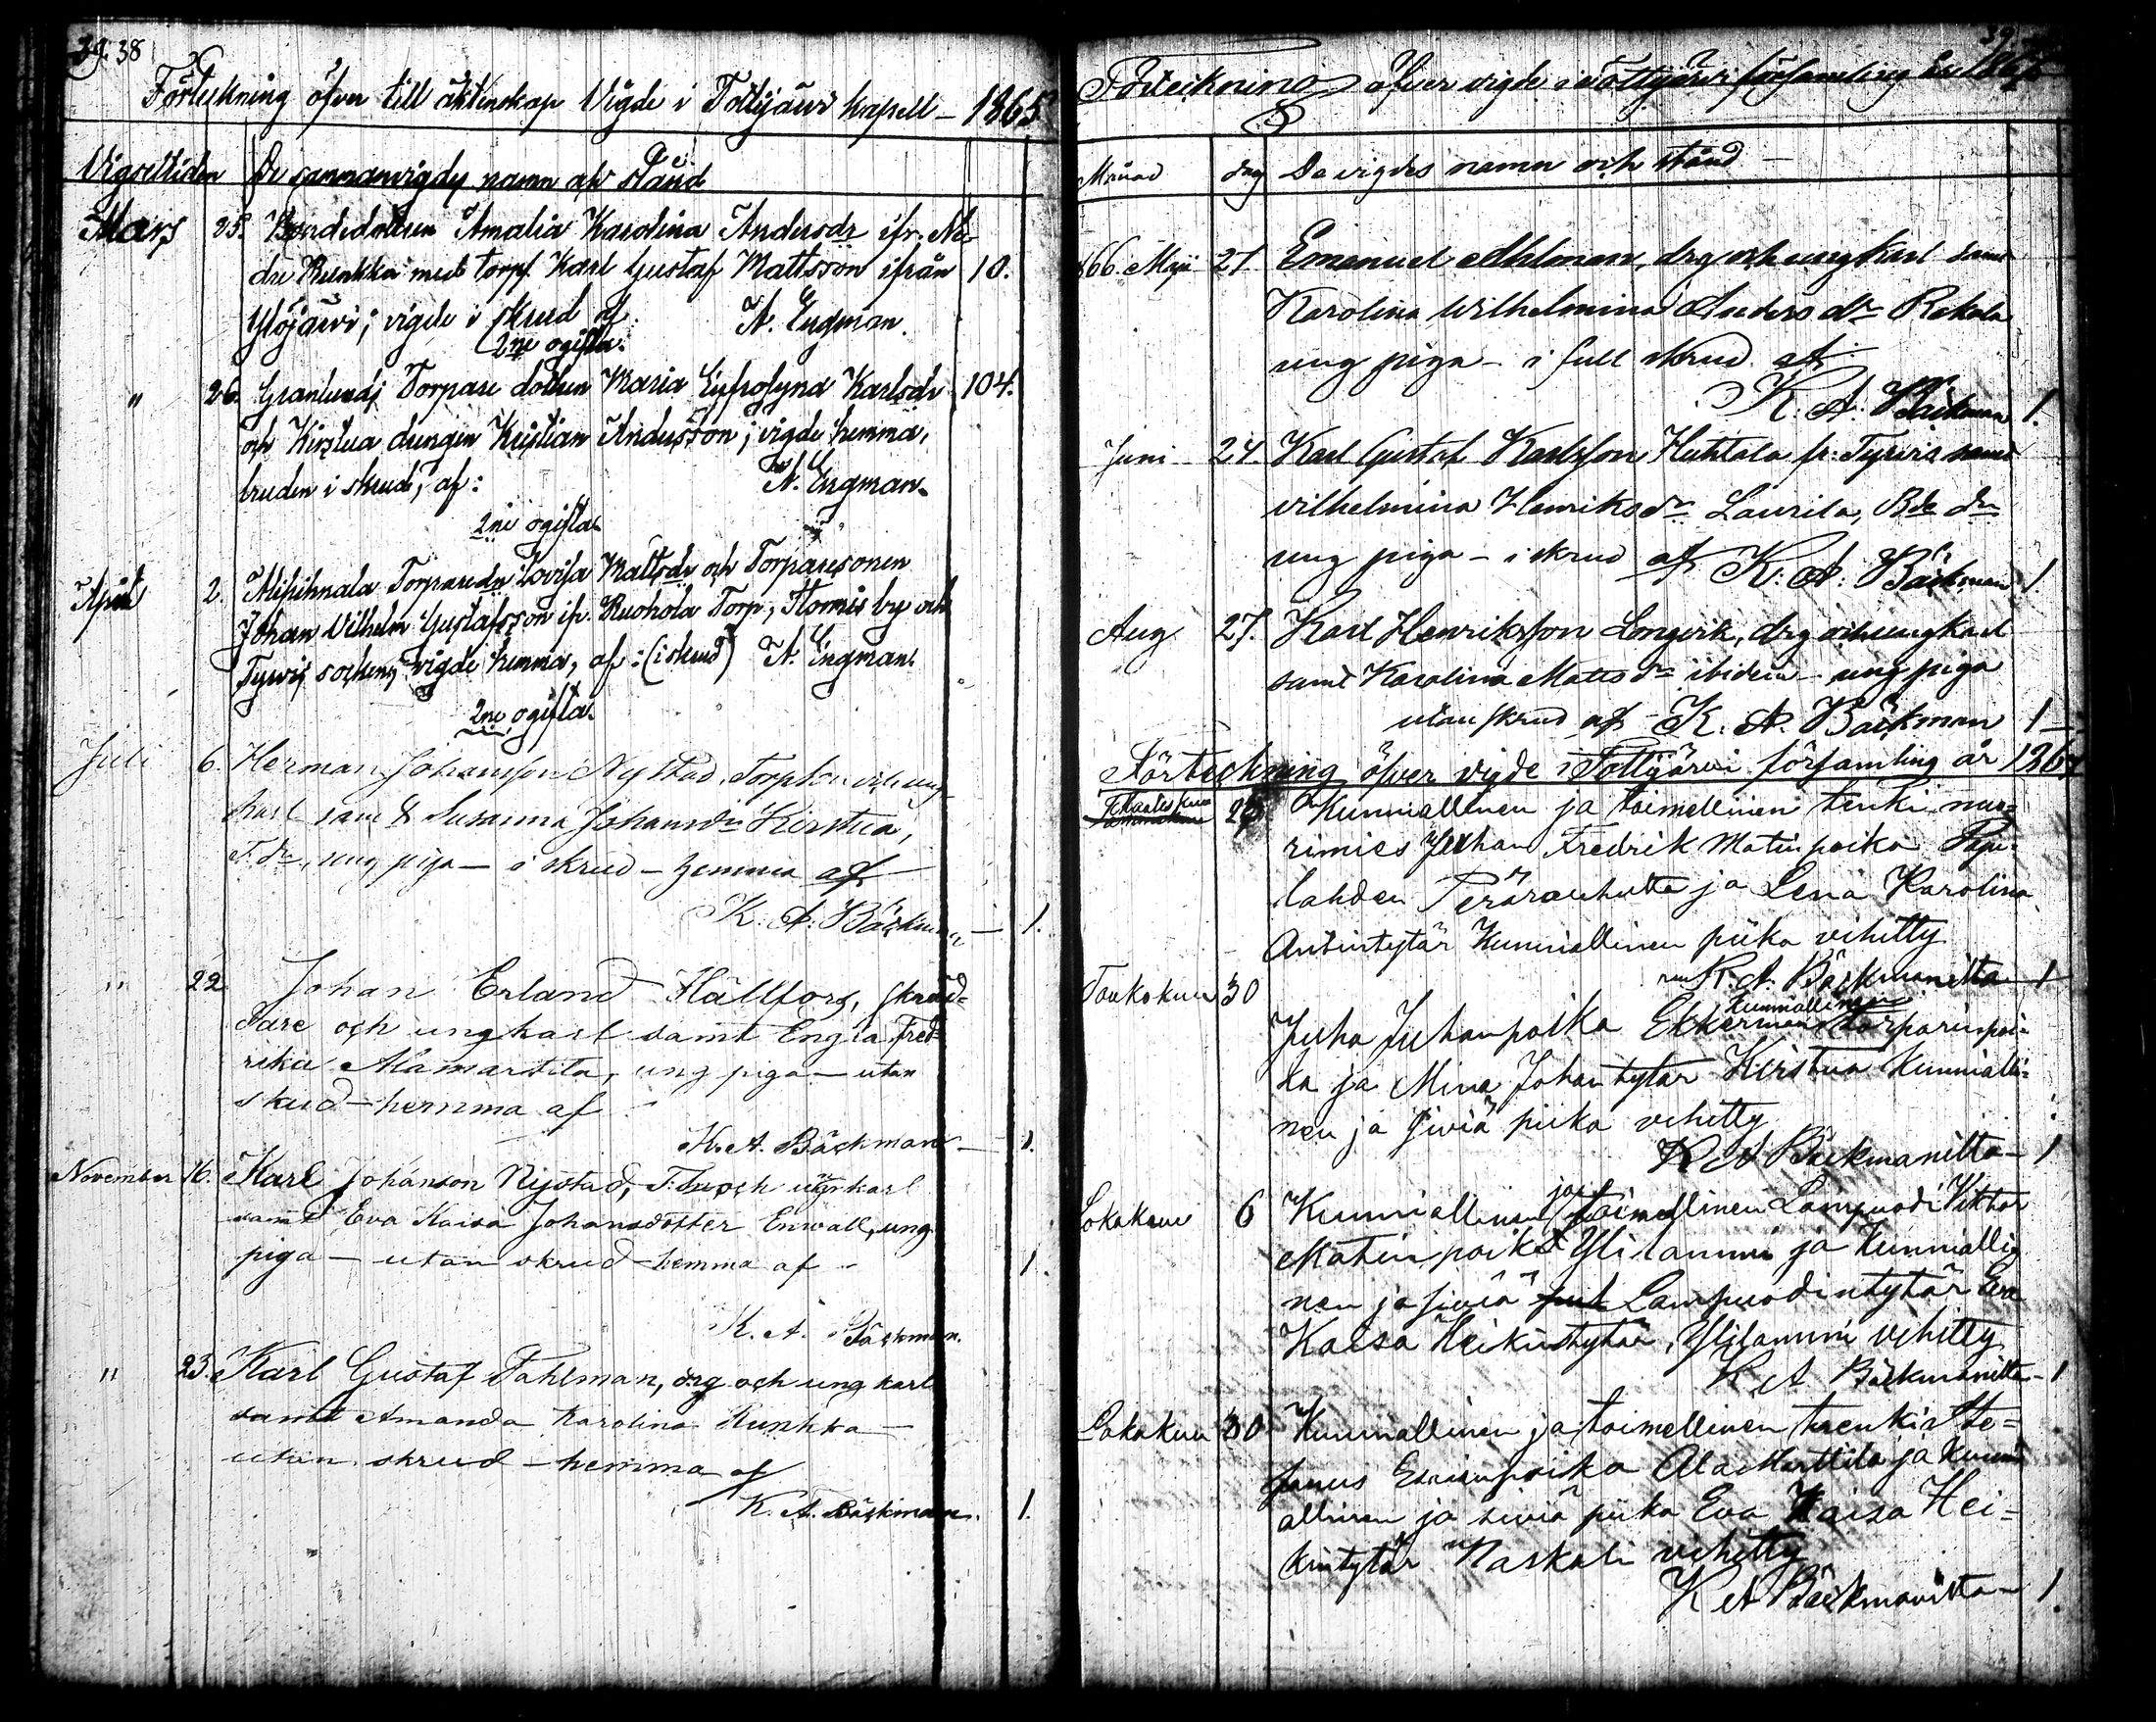 39. 38
Förteckning öfver till äktenskap Vigde i Tottijärvi kapell – 1865
Vigseltiden De sammanvigdes namn och stånd
Mars 25. Bondedottren Amalia Karolina Andersdr ifr. Ne-
dre Runkka med torp. Karl Gustaf Mattsson ifrån 10.
Ylöjärvi; vigde i skrud af A. Engman.
2ne ogifta.
" 26. Granlunds Torpare dottren Maria Eufrosyna Karlsdr 104.
och Kirstua drengen Kristian Andersson; vigde hemma,
bruden i skrud, af: A. Engman.
2ne ogifta
April 2. Torparedr Lovisa Mattsdr och Torparesonen
Johan Vilhelm Gustafsson ifr. Ruohola Torp, by och
Tyrvis sochen, vigde hemma, af: (i skrud) A. Engman.
2ne ogifta.
Juli 6. Herman Johansson Nystad, Torpson och ung-
karl samt Susanna Johansdr Kirstua,
T. dr, ung piga – i skrud – hemma af
K. A. Bäckman – 1.
" 22 Johan Erland Hällfors, skräd-
dare och ungkarl samt Engla Fred-
rika Alamarttila, ung piga – utan
skrud – hemma af
K. A. Bäckman – 1.
November 16. Karl Johanson Nystad, T. och ungkarl
samt Eva Kaisa Johansdotter Enwall, ung
piga – utan skrud – hemma af – 1.
K. A. Bäckman.
" 23. Karl Gustaf Fahlman, drg och ung karl
samt Amanda Karolina Runkka –
utan skrud – hemma af
K. A. Bäckman. 1.
39.
Förteckning öfver vigde i Tottijärvi församling år
Månad dag De vigdes namn och stånd –
1866. Maji 27. Emanuel Ahlman, drg och ungkarl samt
Karolina Wilhelmina Anders dr Rekola
ung piga – i full skrud af
K. A. Bäckman 1.
Juni 24. Karl Gustaf Karlsson Huhtala fr. Tyrvis samt
Vilhelmina Henriks dr Laurila, Bde dr
ung piga – i skrud af K. A. Bäckman 1.
Aug. 27. Karl Henriksson Longvik, drg och ungkarl
samt Karolina Matts dr ibidem – ung piga
utan skrud af K. A. Bäckman 1 –
Förteckning öfver vigde i Tottijärvi församling år 1867
Maaliskuu 24 Kunniallinen ja toimellinen renki nuo-
rimies Juhan Fredrik Matinpoika
lahden ja Lena Karolina
Antintytär Kunniallinen piika vihitty
K. A. Bäckmanilta – 1
Toukokuu 30 Kunniallinen
Juha Juhanpoika Ekkerman torparinpoi-
ka ja Mina Johantytär Kirstua Kunnialli-
nen ja siviä piika vihitty
K A Bäckmanilta – 1
Lokakuu 6 Kunniallinen ja toimellinen Lampuodi Viktor
Matinpoika Ylilammi ja Kunnialli-
nen ja siviä Lampuodintytär Eva
Kaisa Heikintytär, Ylilammi vihitty
K A Bäckmanilta – 1
Lokakuu 30 Kunniallinen ja toimellinen trenki Ste-
fanus Ala Marttila ja kunni-
allinen ja siviä piika Eva Kaisa Hei-
kintytär Naskali vihitty
K A Bäckmanilta – 1.